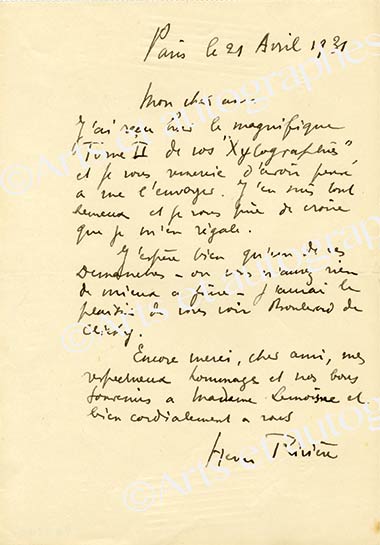 Paris le 21 Avril 1931
Mon cher ami
J'ai reçu hier le magnifique
Tome II de vos "Xylographies"
et je vous remercie d'avoir pensé
à me l'envoyer. J'en suis tout
heureux et je vous prie de croire
que je m'en régale.
J'espère bien qu'un de ces
Dimanches – où vous n'aurez rien
de mieux à faire – j'aurai le
plaisir de vous voir Boulevard de
Clichy.
Encore merci, cher ami, mes
respectueux hommages et nos bons
souvenirs à Madame Lemoisne et
bien cordialement à vous
Henri Rivière
©Arts et autographes